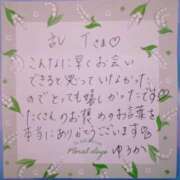 Tさま♡
こんなに早くお会い
できると思っていなかった
のでとっても嬉しかったです♡
たくさんのお褒めのお言葉を
本当にありがとうございます
Floral days
ゆうか